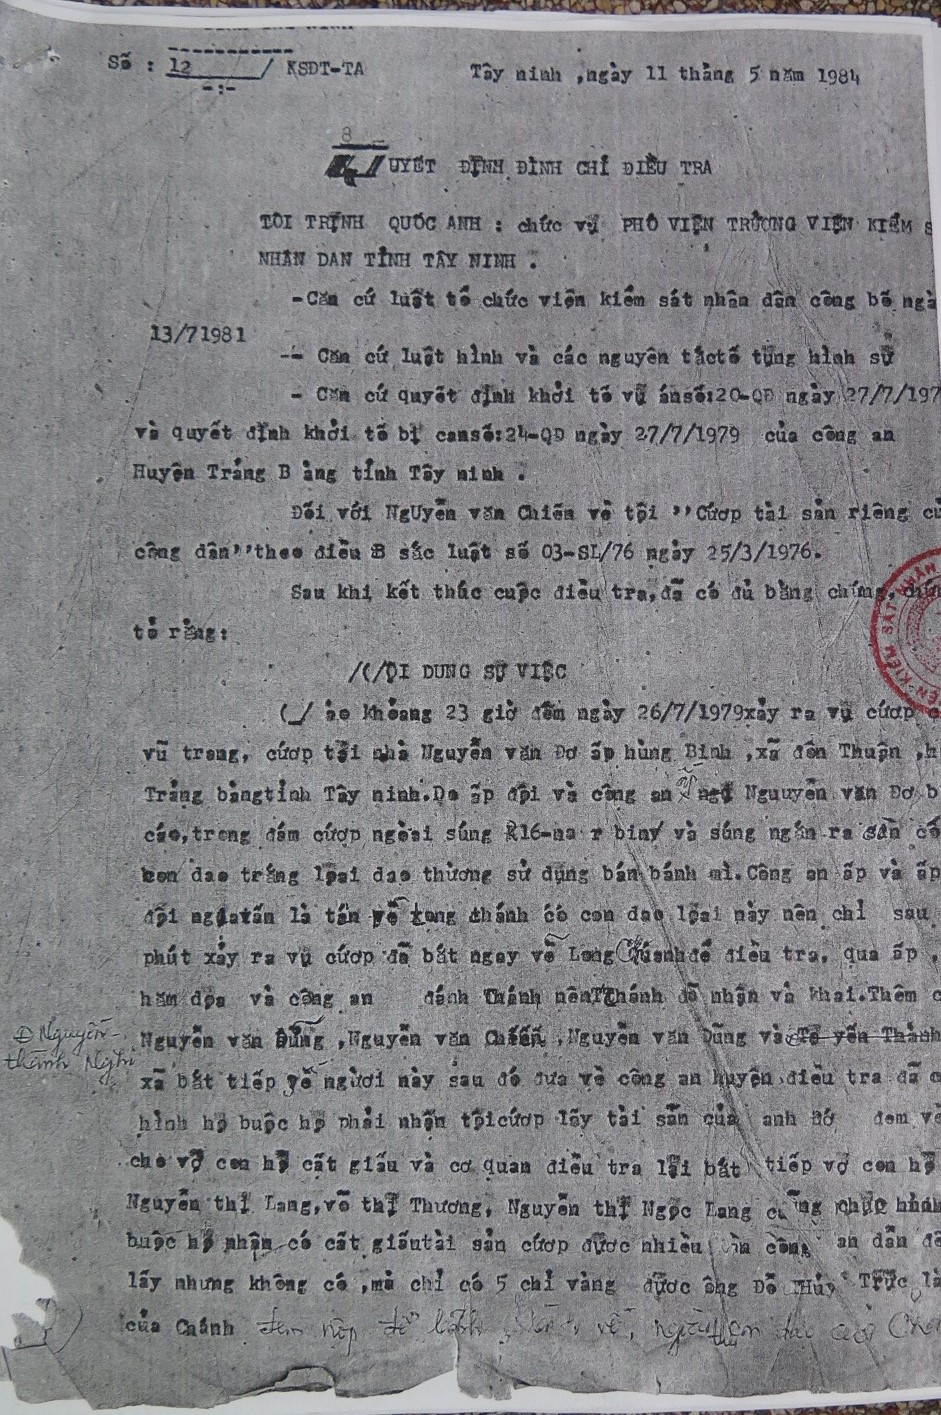 Số : 12 / KSĐT-TA
Tây ninh ,ngày 11 tháng 5 năm 1984
-:-
8
QUYẾT ĐỊNH ĐÌNH CHỈ ĐIỀU TRA
TÔI TRỊNH QUỐC ANH : chức vụ PHÓ VIỆN TRƯỞNG VIỆN KIỂM S
NHÂN DAN TỈNH TÂY NINH .
-Căn cứ luật tổ chức viện kiểm sát nhân dân công bố ngà
13/71981
-- Căn cứ luật hình và các nguyên tắctố tụng hình sự
- Căn cứ quyết định khởi tố vụ ánsố:20-QĐ ngày 27/7/197
và quyết định khởi tố bị cansố:24-QĐ ngày 27/7/1979 của công an
Huyện Trảng B àng tỉnh Tây ninh .
Đối với NgUyễn văn Chiến về tội "Cướp tài sản riêng củ
công dân"theo điều B sắc luật số 03-SL/76 ngày 25/3/1976.
Sau khi kết thúc cuộc điều tra,đã có đủ bằng chứng, chứn
tỏ rằng:
NỘI DUNG SỰ VIỆC
Vào khoảng 23 giờ đêm ngày 26/7/1979xảy ra vụ cướp c
vũ trang, cướp tại nhà Nguyễn văn Đơ ấp hùng Bình ,xã đôn Thuận ,h
Trảng bàngtỉnh Tây ninh.Do ấp đội và công an ấp Nguuyễn văn Đơ b
cáo,trong đám cướp ngoài súng và súng ngắn ra còn có
con dao trắng loại dao thường sử dụng bán bánh mì.Công an ấp và ấp
đội là có con dao loại này nên chỉ sau
phút xảy ra vụ cướp đã bắt ngay về Long để điều tra, qua ấp ,
hăm dọa và công an đánh Thánh nên Thánh đã nhận và khai.Thêm c
Đ Nguyễn
thành Nghị
Nguyễn văn Dũng ,Nguyễn văn Chiến ,Nguyễn văn Dũng và Tô yến Thành
xã bắt tiếp người này sau đó đưa về công an huyện điều tra đã c
hình họ buộc họ phải nhận tộicướp lấy tài sản của anh đớ đem về
cho vợ con họ cất giấu và cơ quan điều tra lại bắt tiếp vợ con họ
Nguyễn thị Lang,võ thị Thương, Nguyễn thị Ngọc Lang cũng nhục hình
buộc họ nhận có cất giấutài sản cướp được nhiều lần công an dẫn đế
lấy nhưng không có ,mà chỉ có 5 chỉ vàng được ông Đỗ Hủy Trực là
của Chánh đem nộp để